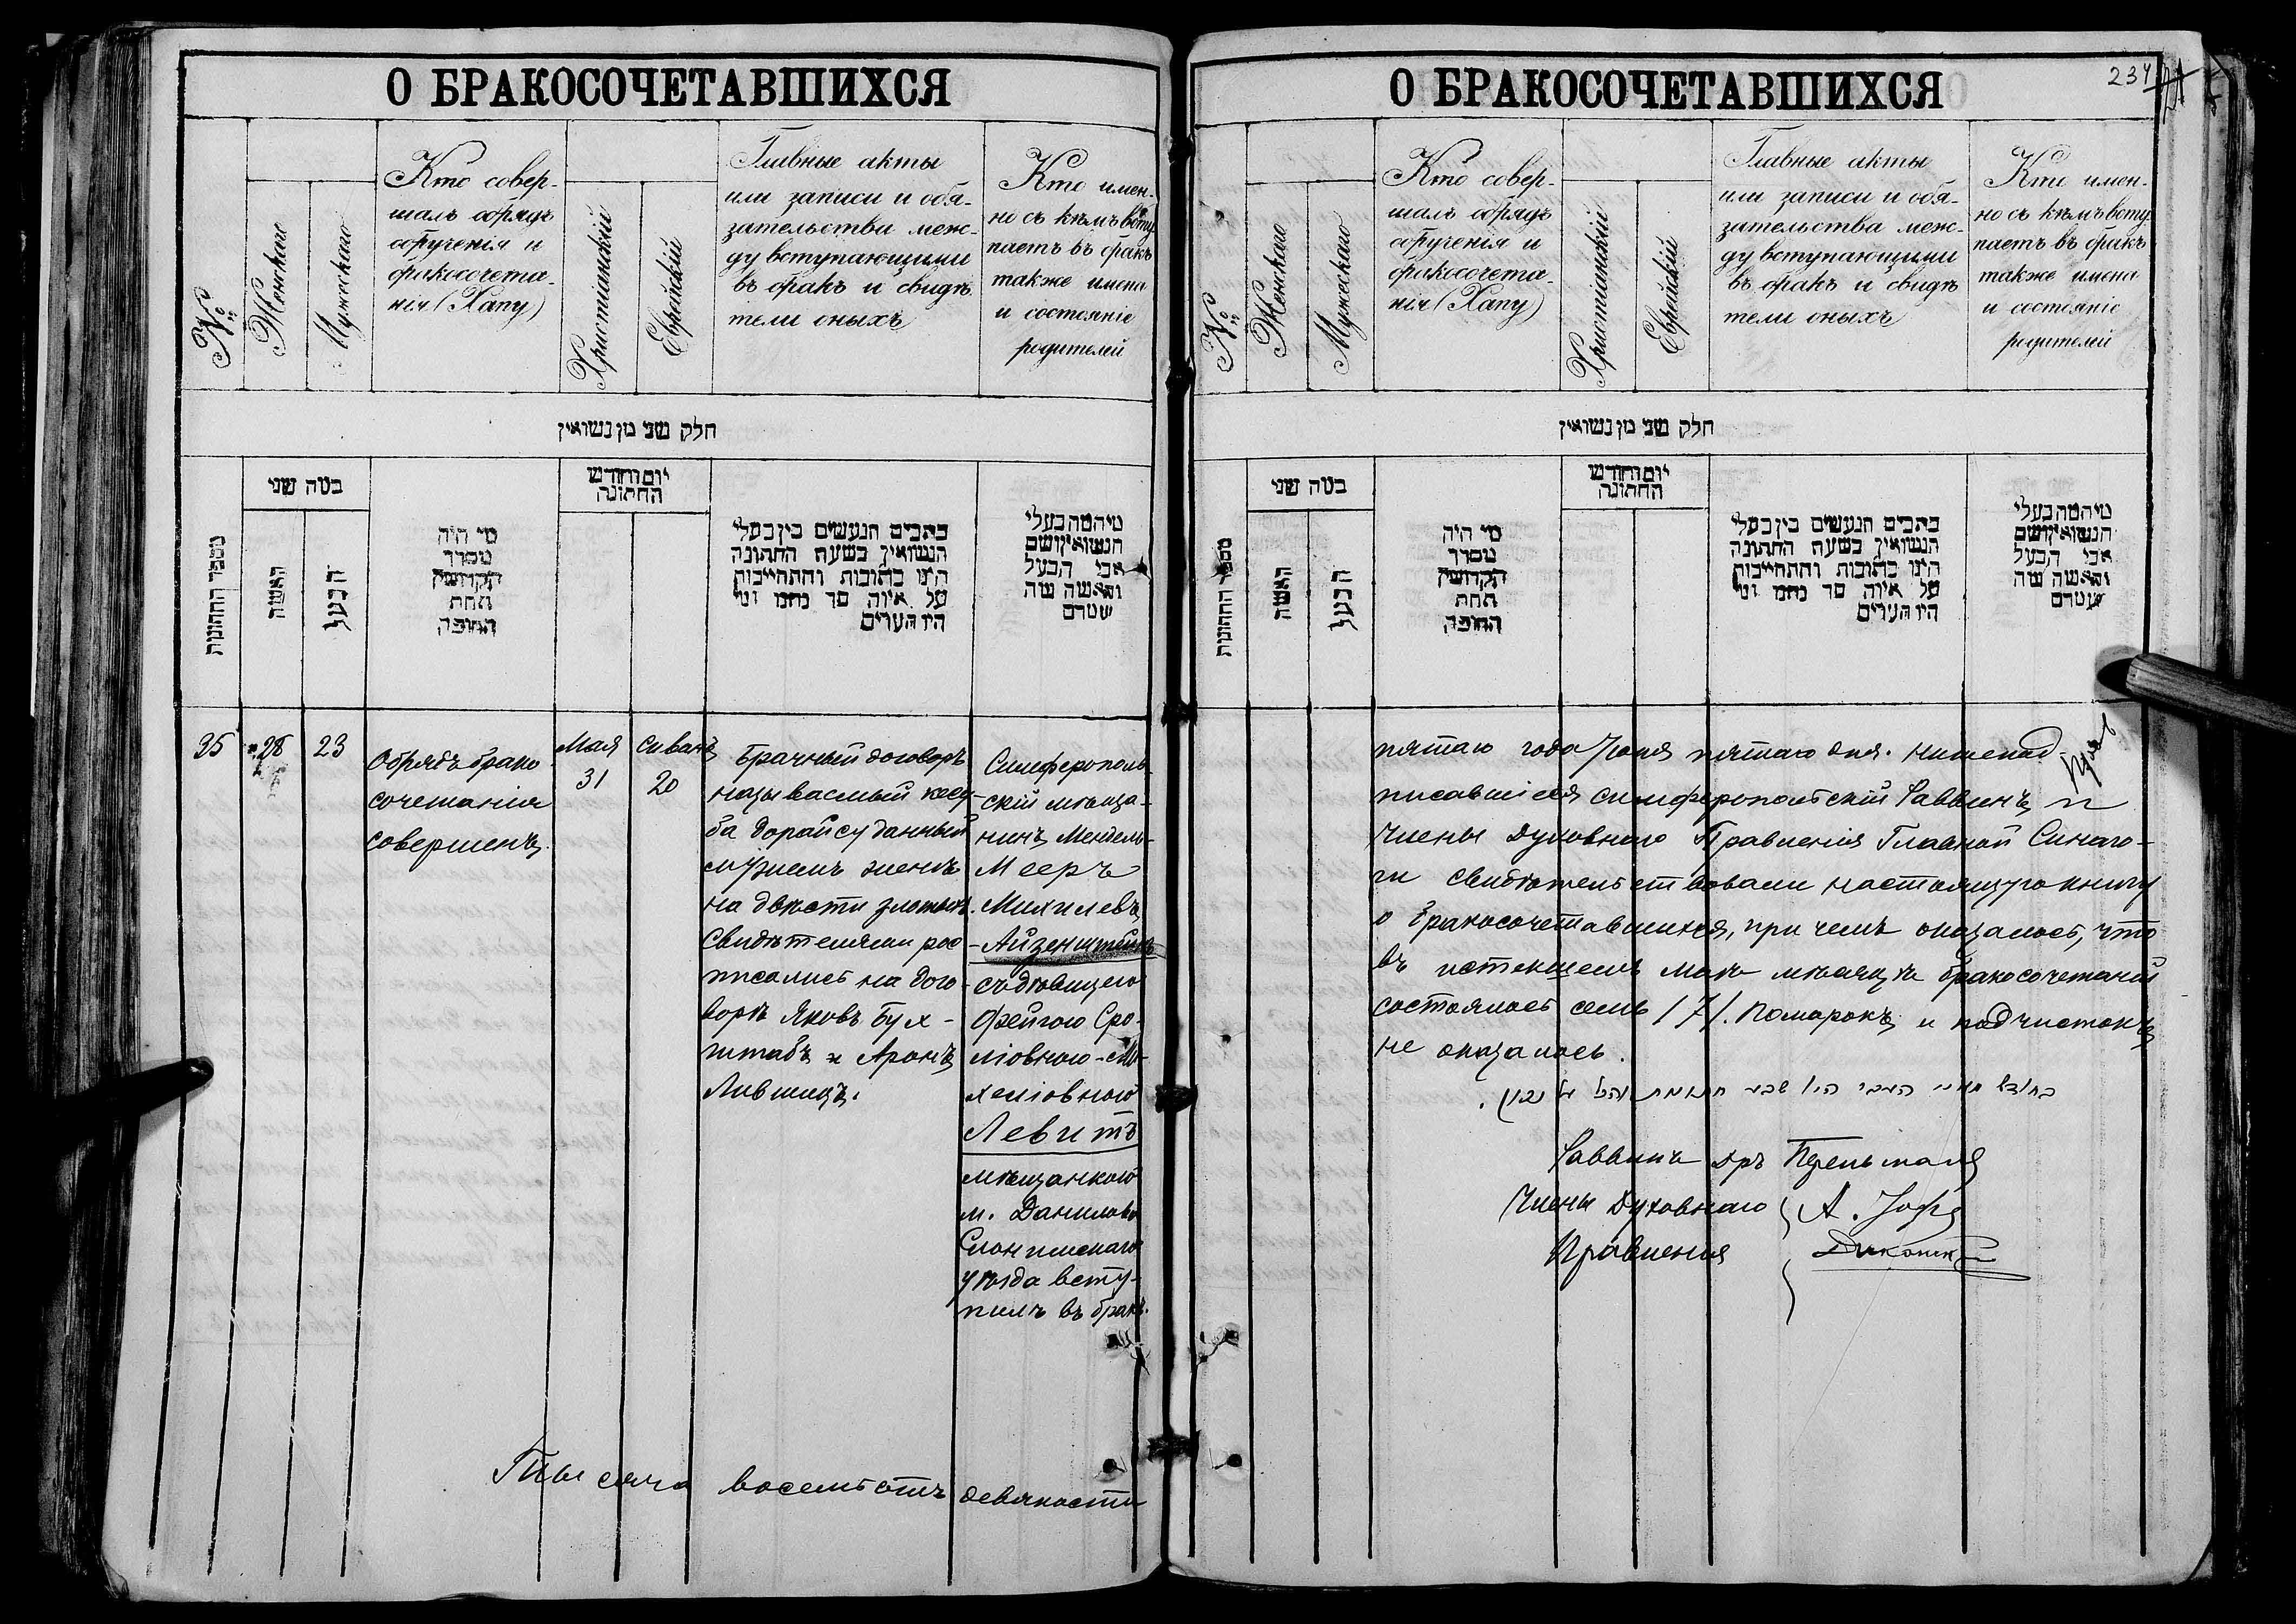 О БРАКОСОЧЕТАВШИХСЯ
№
Женскаго
Мужескаго
Кто совер-
шалъ обрядъ
обрученія и
бракосочета-
нія (Хапу)
Христіанскій
Еврейскій
Главные акты
или записи и обя-
зательства меж-
ду вступающими
въ бракъ и свидѣ
тели оныхъ
Кто имен-
но съ кѣмъ всту
паетъ въ бракъ
также имена
и состояніе
родителей
חלק שני מן נשואין
מספר החתונות
כמה שני
האשה
הבעל
מי היה
מסדר
הקדושין
תחת
החופה
יום וחודש
החתונה
כתבים הנעשים בין בעלי
הנשואין בשעת החתונה
היינו כתובות והתחייבות
על איזה סך
היו העדים
הנשואין ושם
אבי הבעל
והאשה
35
28
23
Обрядъ брако
сочетанія
совершенъ
Мая
31
Сиванъ
20
Брачный договоръ
называемый кесу-
ба дорайсу данный
мужемъ женѣ
на двѣсти злотыхъ.
Свидѣтелями рос-
писались на дого-
ворѣ Яковъ Бух-
штабъ и Аронъ
Лившицъ.
Симферополь-
скій мѣща-
нинъ Мендель-
Мееръ
Михилевъ
Айзенштейнъ
съ дѣвицею
Фейгою Сро-
ліовною-Ми-
хеліовною
Левитъ
мѣщанкою
м. Данилово
Слонимскаго
уѣзда всту-
пилъ въ бракъ.
Тысяча восемьсотъ девяносто
О БРАКОСОЧЕТАВШИХСЯ
234
№
Женскаго
Мужескаго
Кто совер-
шалъ обрядъ
обрученія и
бракосочета-
нія (Хапу)
Христіанскій
Еврейскій
Главные акты
или записи и обя-
зательства меж-
ду вступающими
въ бракъ и свидѣ
тели оныхъ
Кто имен-
но съ кѣмъ всту
паетъ въ бракъ
также имена
и состояніе
родителей
חלק שני מן נשואין
מספר החתונות
כמה שני
האשה
הבעל
מי היה
מסדר
הקדושין
תחת
החופה
יום וחודש
החתונה
כתבים הנעשים בין בעלי
הנשואין בשעת החתונה
היינו כתובות והתחייבות
על איזה סך
היו העדים
הנשואין ושם
אבי הבעל
והאשה
пятаго года Іюня пятаго дня. нижепод-
писавшіеся симферопольскій Раввинъ и
Члены Духовнаго Правленія Главной Синаго-
ги свидѣтельствовали настоящую книгу
о бракосочетавшихся, при чемъ оказалось, что
въ истекшемъ маѣ мѣсяцѣ бракосочетаній
состоялось семь /7/. Помарокъ и подчистокъ
не оказалось.
Раввинъ Дръ
Члены Духовнаго
Правленія